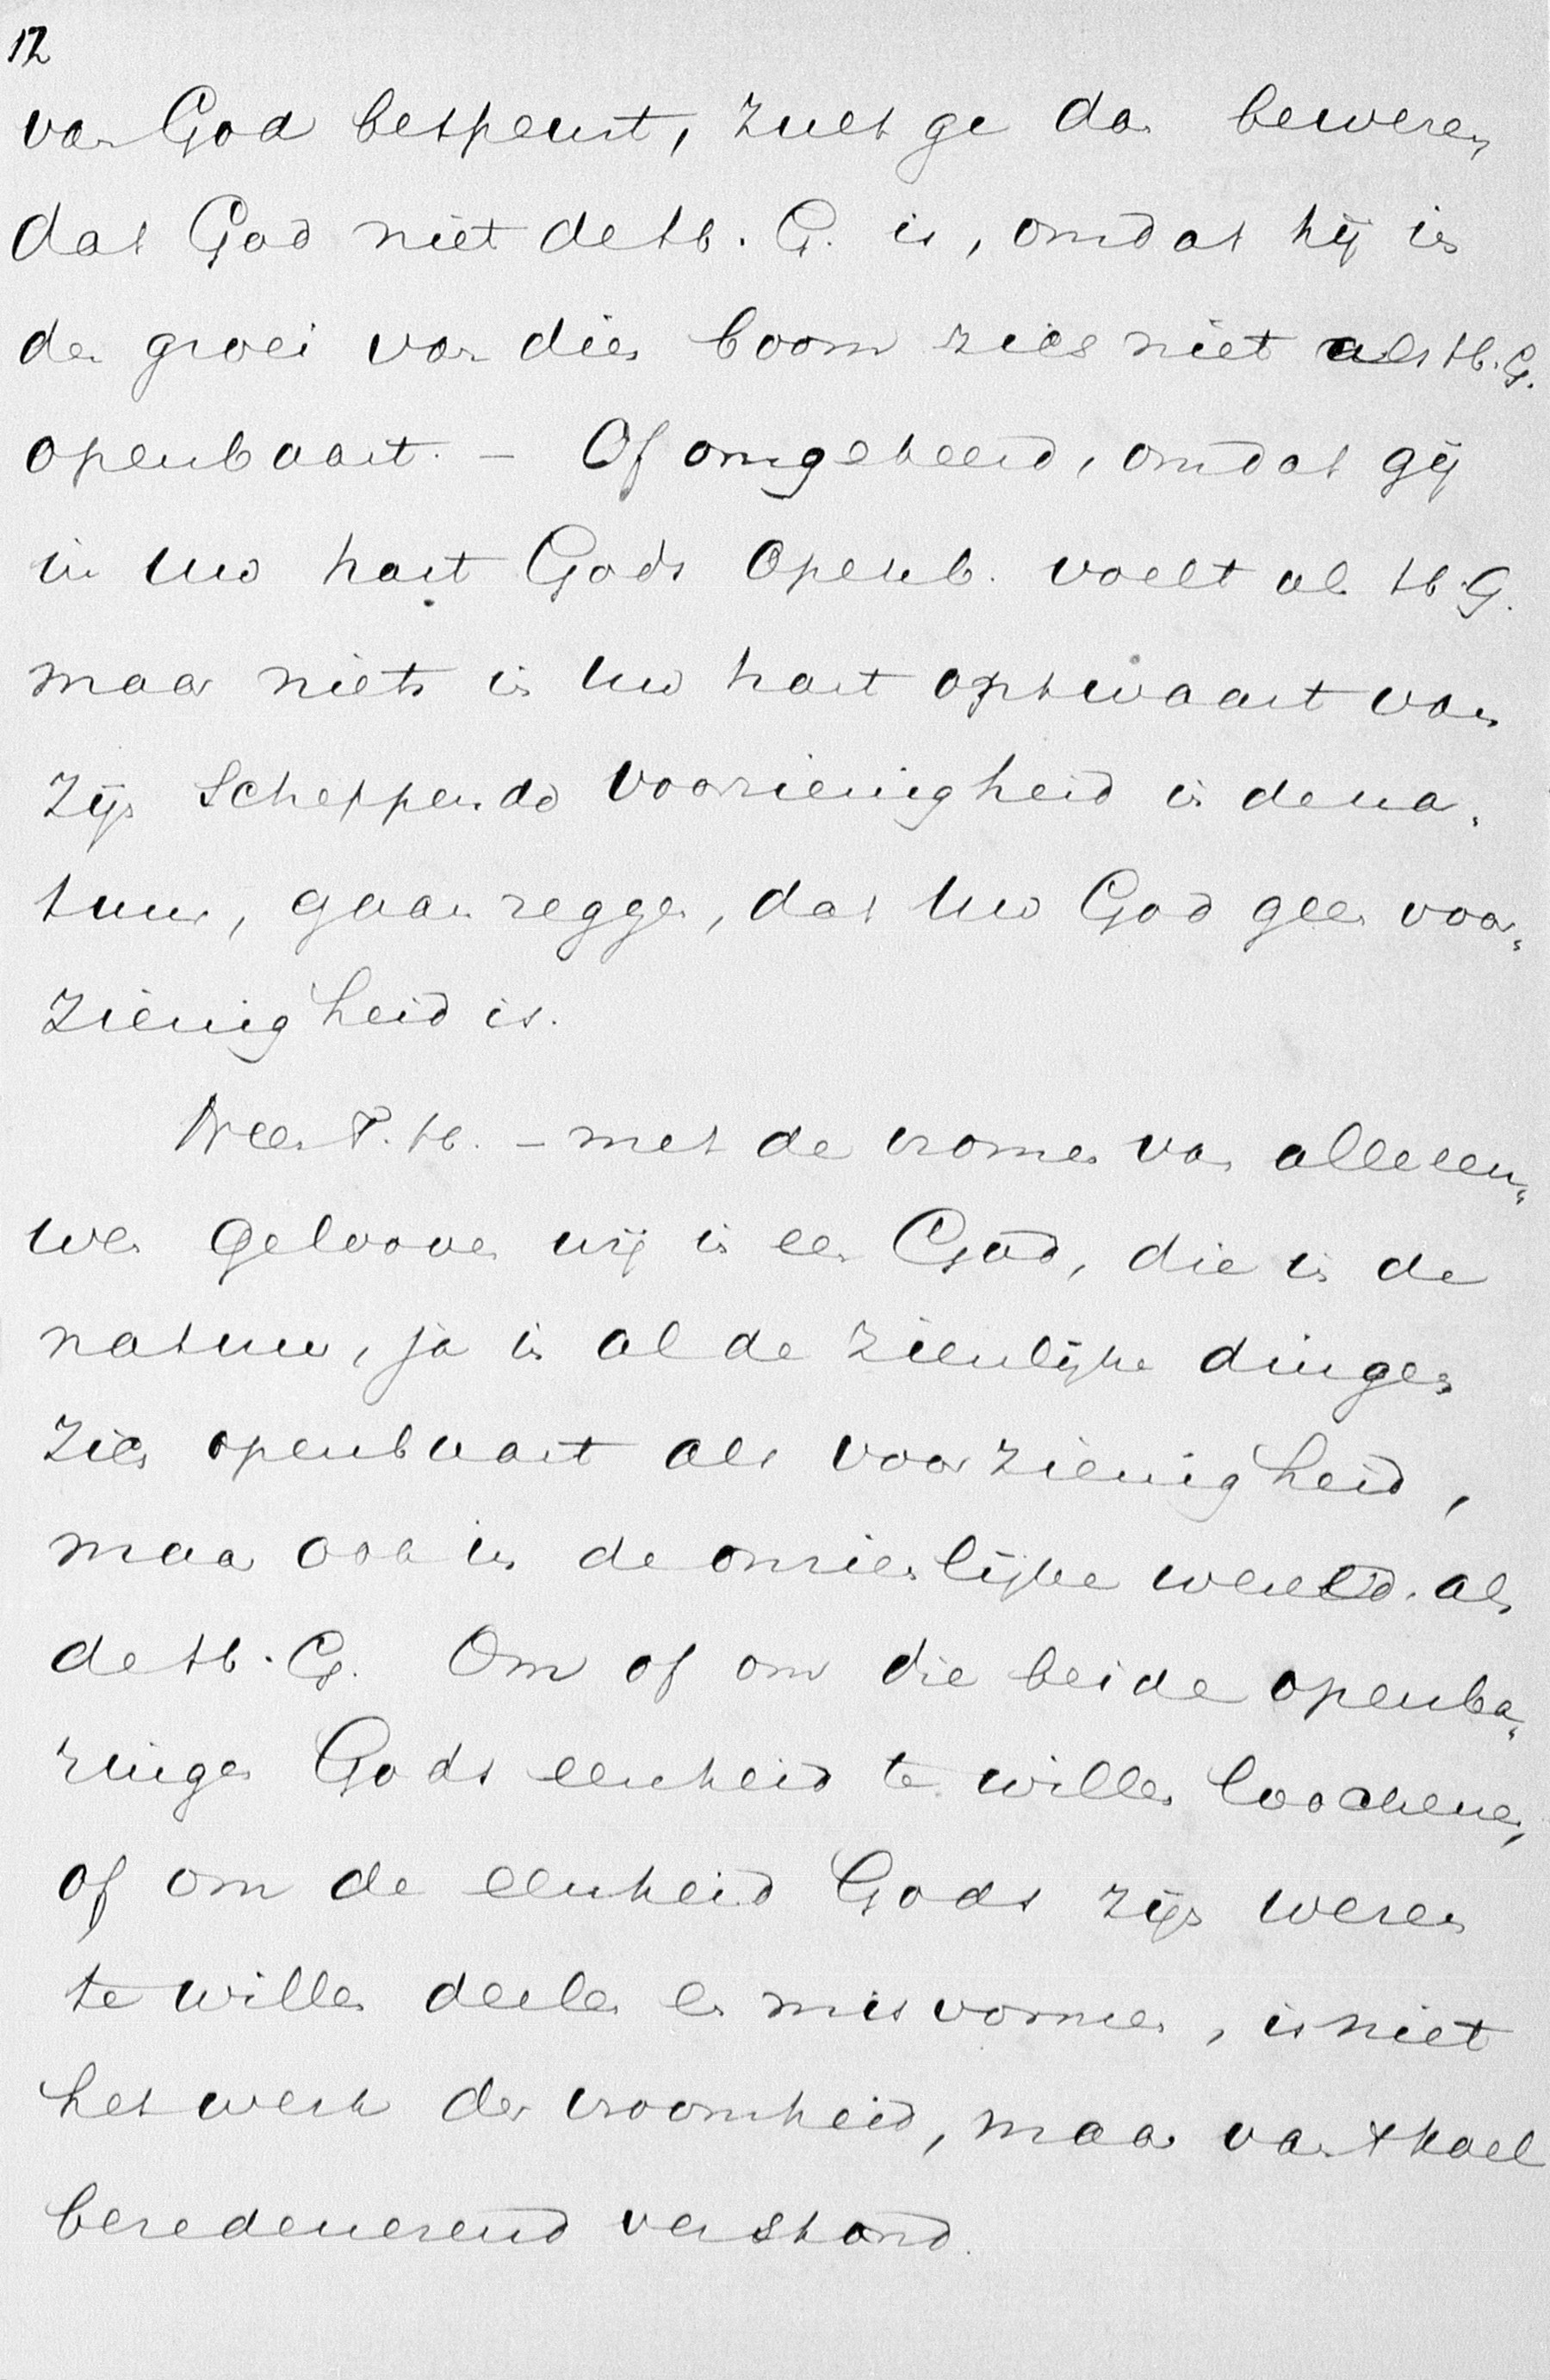 12
van God bespeurt, zult ge dan beweren
dat God niet de H. G. is, omdat hij in
den groei van dien boom zich niet als H. G.
openbaart. – Of omgekeerd, omdat gij
in uw hart Gods Openb. voelt als H. G.
maar niets in uw hart ontwaart van
zijn scheppende voorzienigheid in de na-
tuur, gaan zeggen, dat uw God geen voor-
zienigheid is.
Neen T. H. – met de vromen van alle eeu-
wen gelooven wij in een God, die in de
natuur, ja in al de zienlijke dingen
zich openbaart als voorzienigheid,
maar ook in de onzienlijke wereld als
de H. G. Om of om die beide openba-
ringen Gods eenheid te willen loochenen,
of om de eenheid Gods zijn wezen
te willen deelen en misvormen, is niet
het werk der vroomheid, maar van 't kael
beredeneerend verstand.